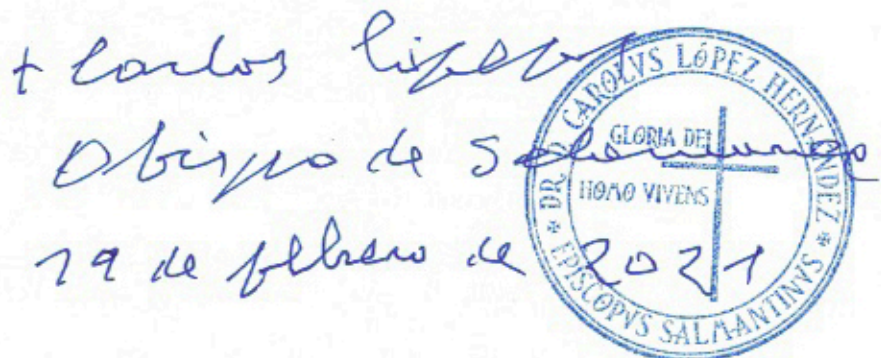 + Carlos López
Obispo de Salamanca
19 de febrero de 2021
* DR. D. CAROLVS LÓPEZ HERNÁNDEZ * EPISCOPVS SALMANTINVS
GLORIA DEI
HOMO VIVENS